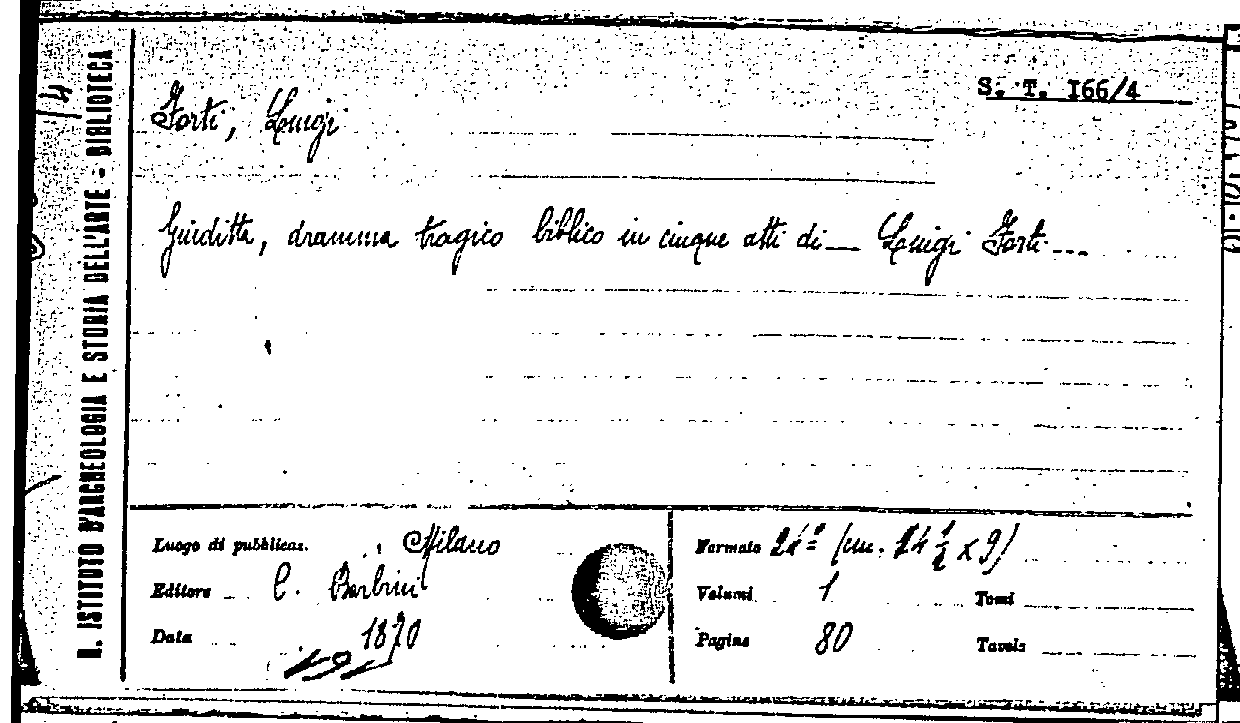 R. ISTITUTO D'ARCHEOLOGIA E STORIA DELL'ARTE - BIBLIOTECA
S. T. I66/4
Forti, Luigi
Giuditta, dramma tragico biblico in cinque atti di__ Luigi Forti ...
Luogo di pubblicaz. Milano
Editore C. Barbini
Data 1870
Formato 24º (cm. 14 1/2 x 9)
Volumi 1 Tomi
Pagine 80 Tavole